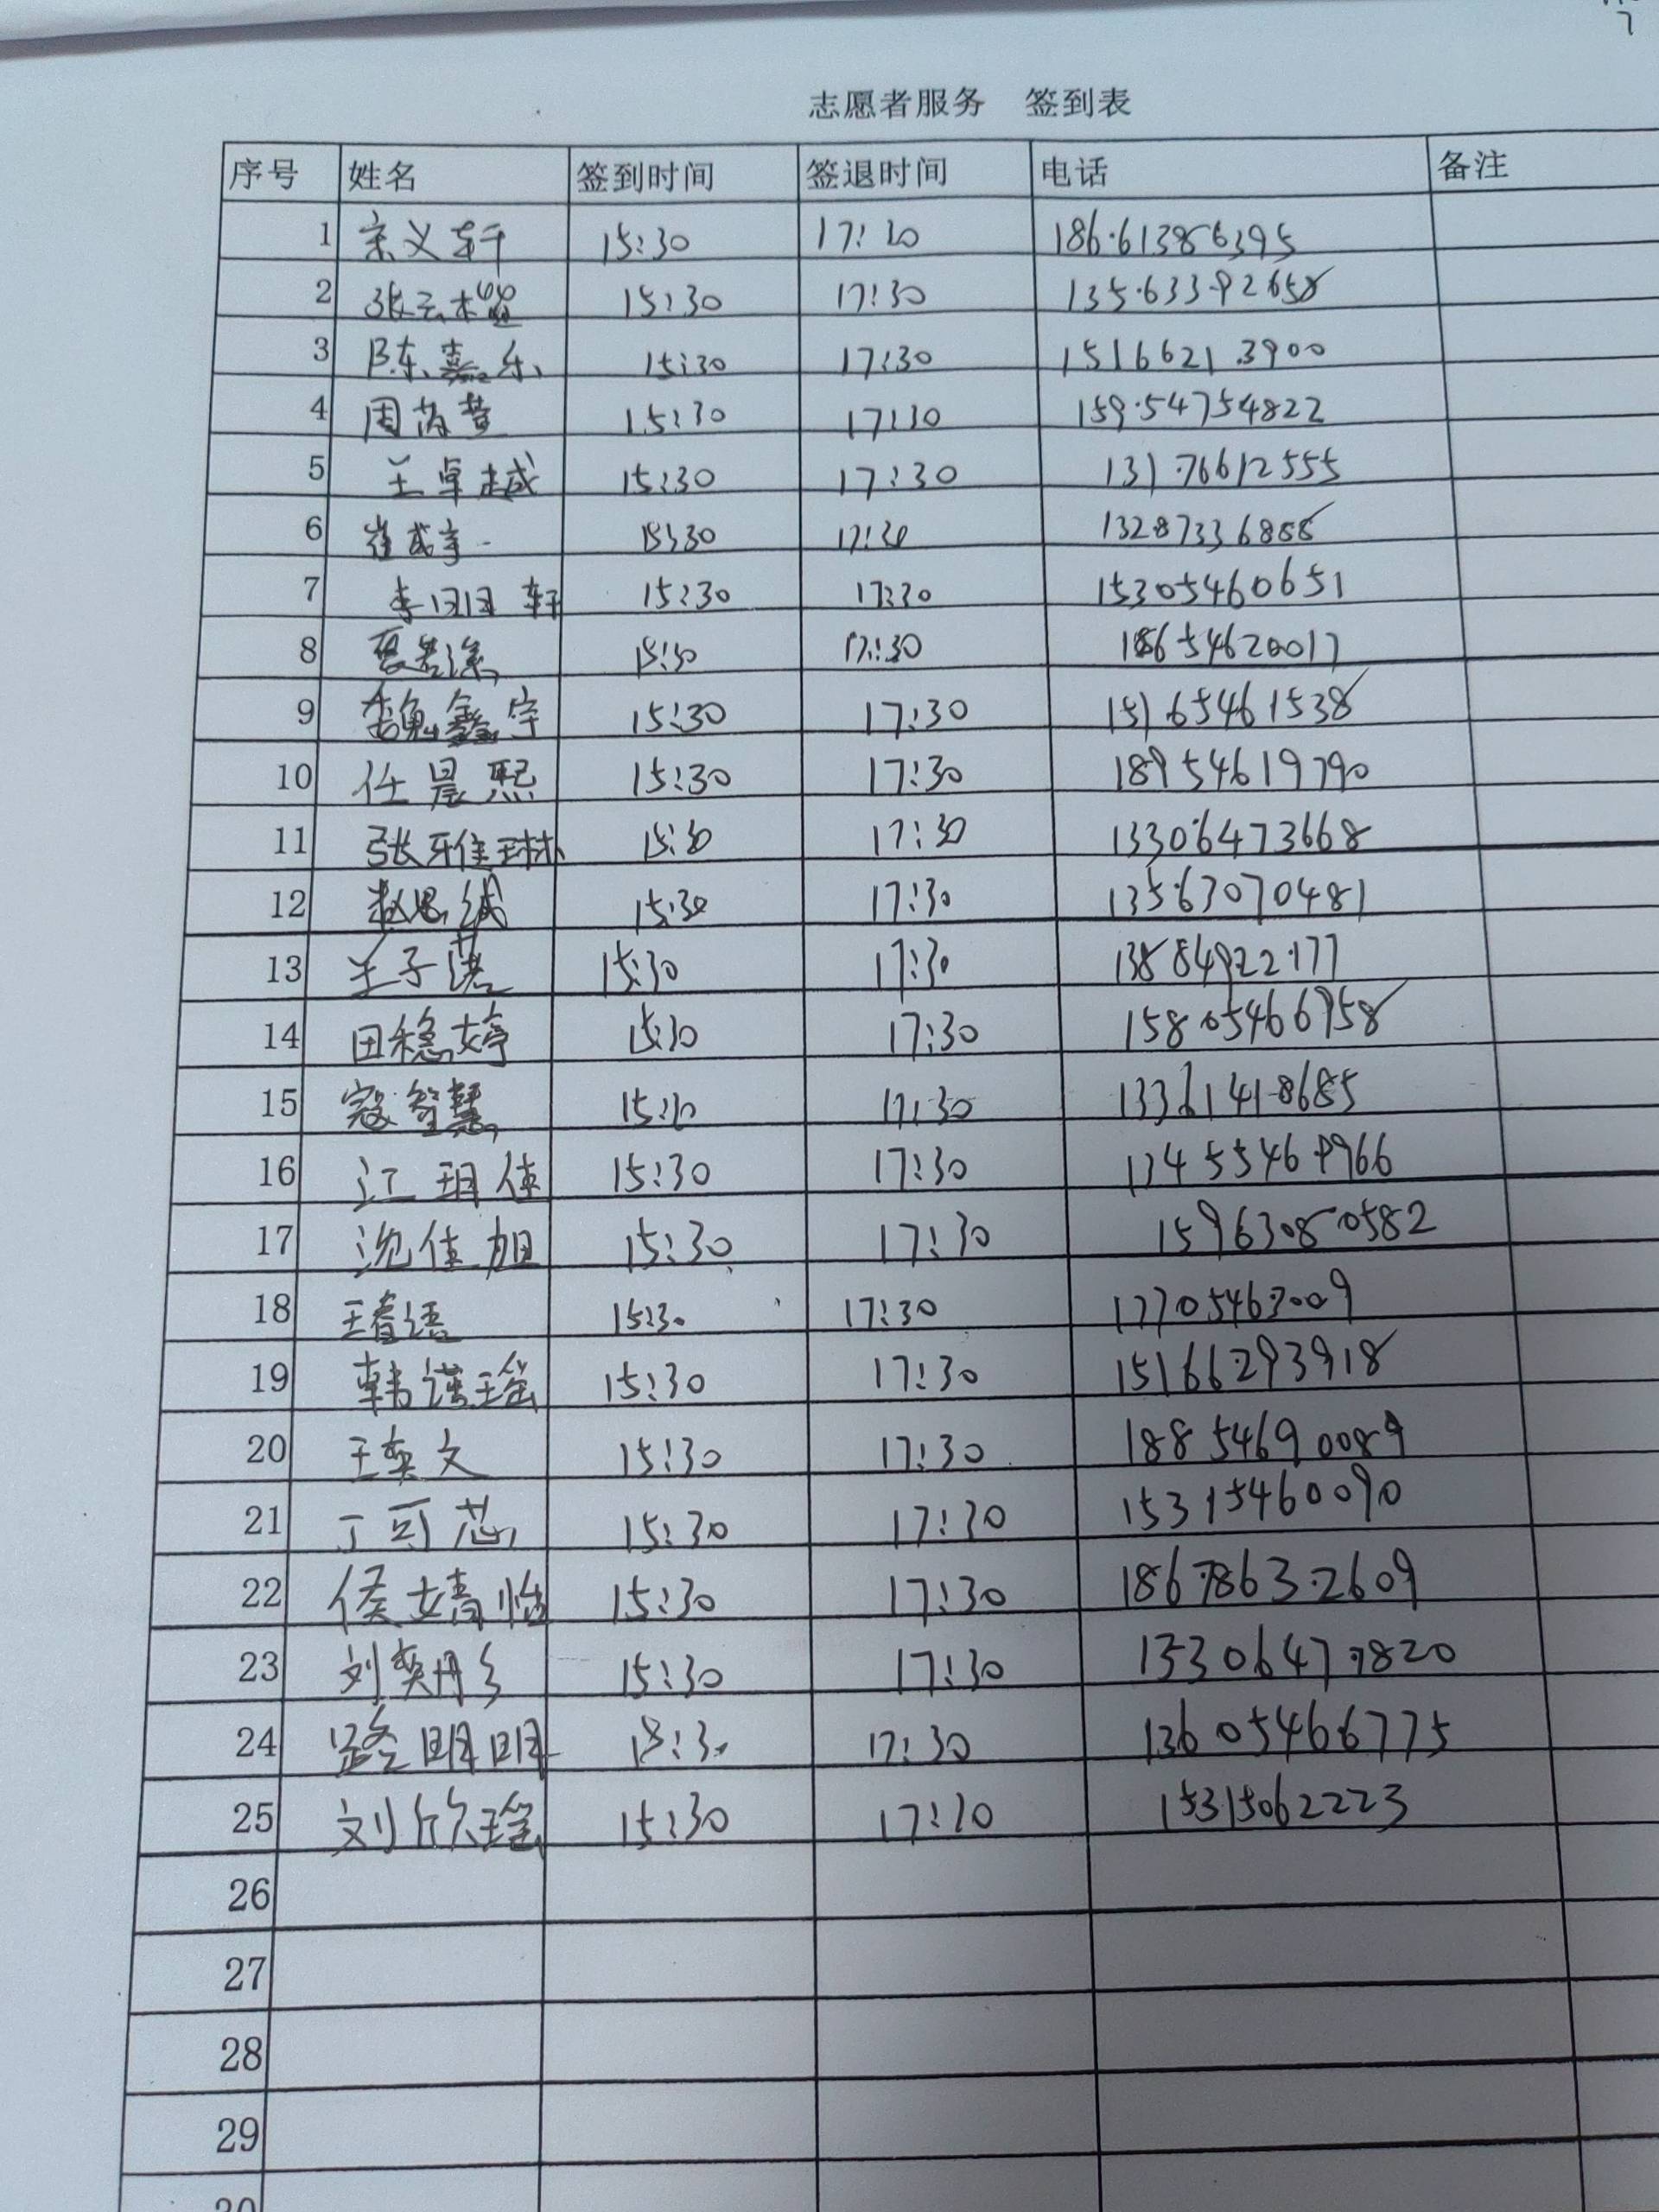 志愿者服务 签到表
序号 姓名 签到时间 签退时间 电话 备注
1 宋义轩 15:30 17:30 186.61386395
2 张云樱 15:30 17:30 135.63392658
3 陈嘉乐 15:30 17:30 15166213900
4 周芮萱 15:30 17:30 159.54754822
5 王卓越 15:30 17:30 131.76612555
6 崔成亨 15:30 17:30 13287336888
7 李玥轩 15:30 17:30 15305460651
8 15:30 17:30 18654620017
9 魏鑫宇 15:30 17:30 15165461538
10 任晨熙 15:30 17:30 18954619790
11 张雅琳 15:30 17:30 13306473668
12 赵思诚 15:30 17:30 13563070481
13 王子涵 15:30 17:30 13884922177
14 田稳婷 15:30 17:30 15805466958
15 寇智慧 15:30 17:30 13361418685
16 江玥佳 15:30 17:30
17 沈佳旭 15:30 17:30 15963080582
18 王睿语 15:30 17:30 17705463009
19 韩诺瑶 15:30 17:30 15166293918
20 王奕文 15:30 17:30 18854690089
21 丁可芯 15:30 17:30 15315460090
22 侯婧怡 15:30 17:30 18678632609
23 刘奕彤 15:30 17:30 13306477820
24 路明明 15:30 17:30 13605466775
25 刘欣瑶 15:30 17:30 15315062223
26
27
28
29